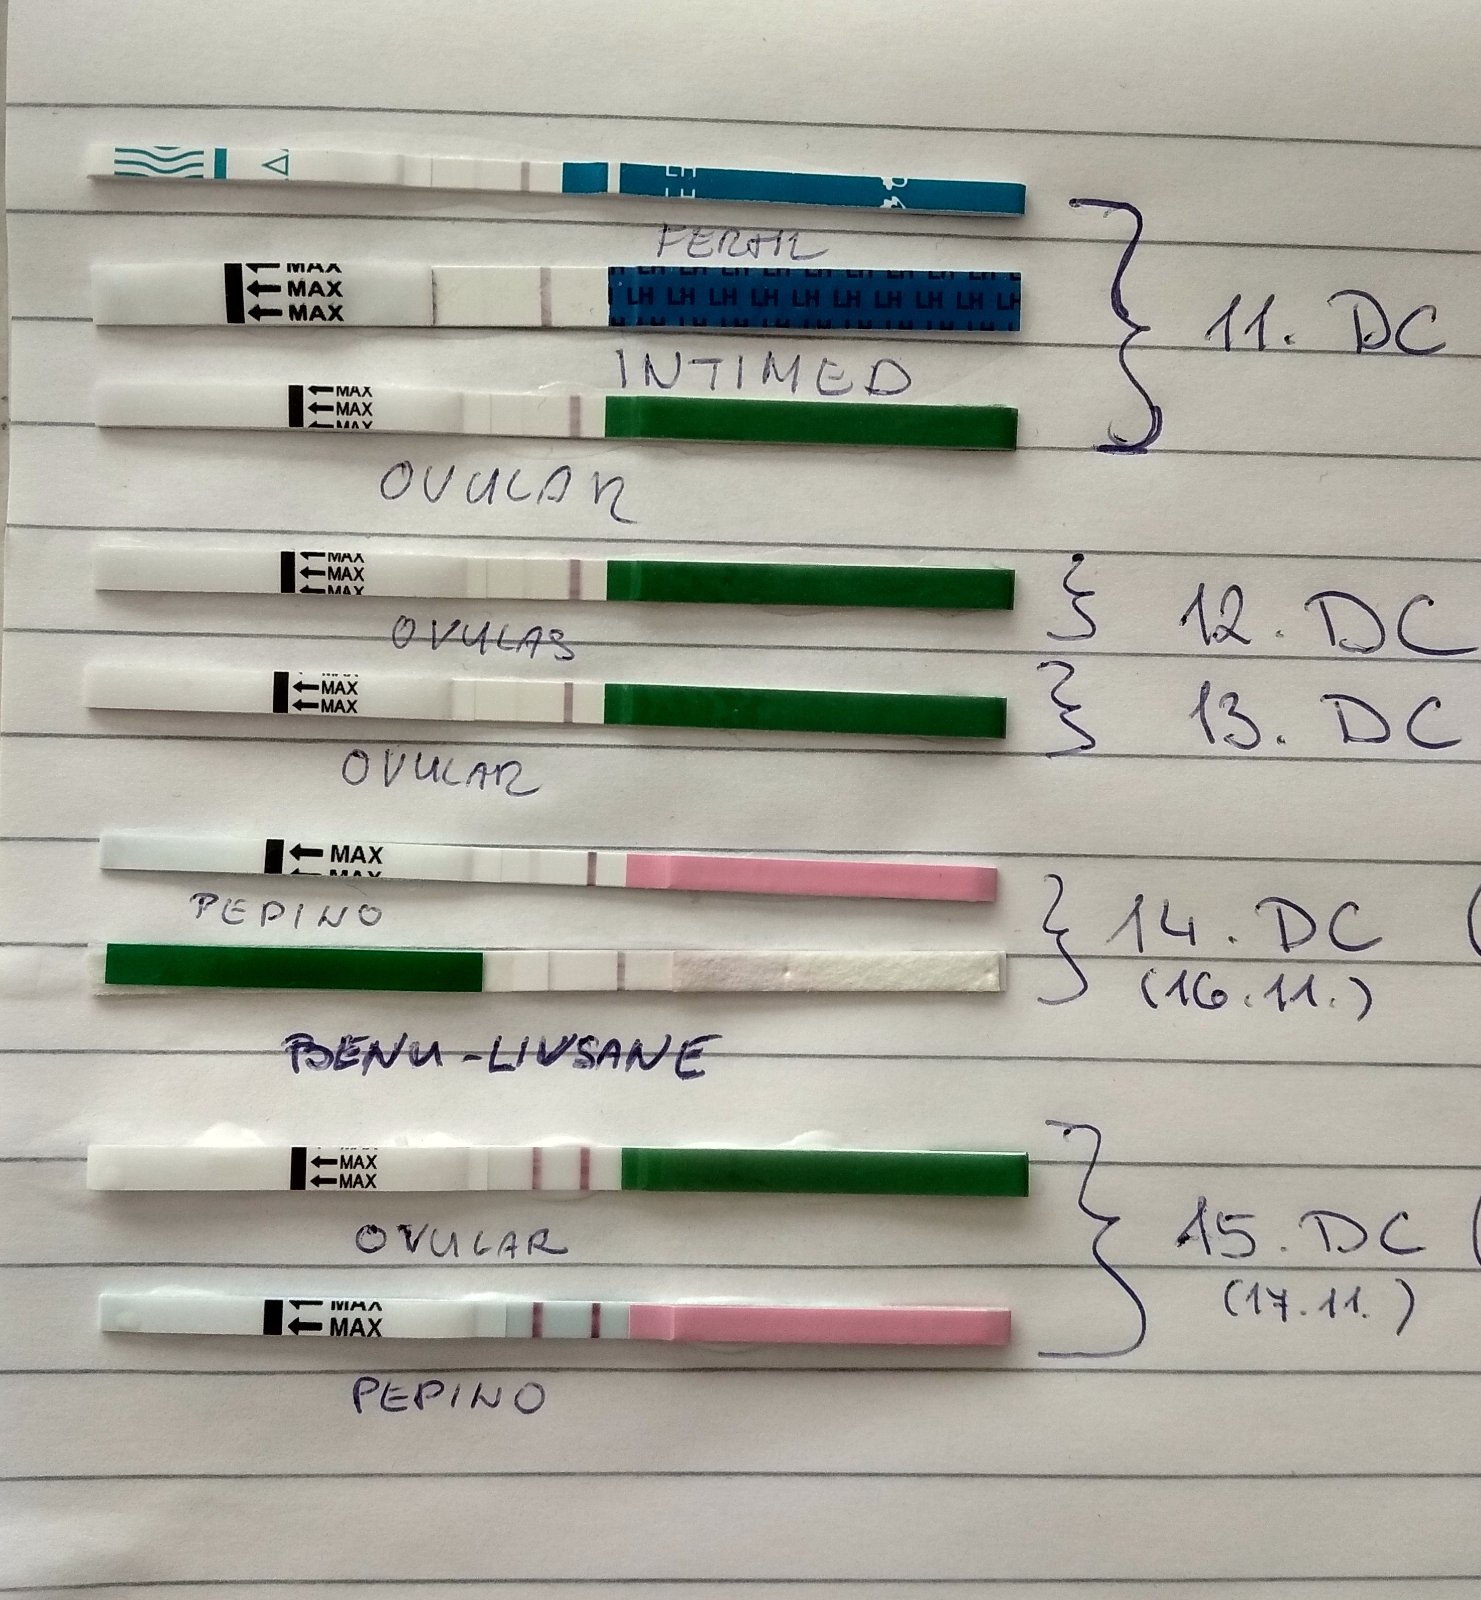 LH
LH
FERTIL
MAX
MAX
MAX
LH LH LH LH LH LH LH LH LH
LH LH LH LH LH LH LH LH LH
LH LH LH LH LH LH LH LH LH
11. DC
INTIMED
MAX
MAX
MAX
OVULAR
MAX
MAX
MAX
12. DC
OVULAR
MAX
MAX
13. DC
OVULAR
MAX
MAX
PEPINO
14. DC (
(16.11.)
BENU-LIVSANE
MAX
MAX
OVULAR
15. DC (
(17.11.)
MAX
MAX
PEPINO